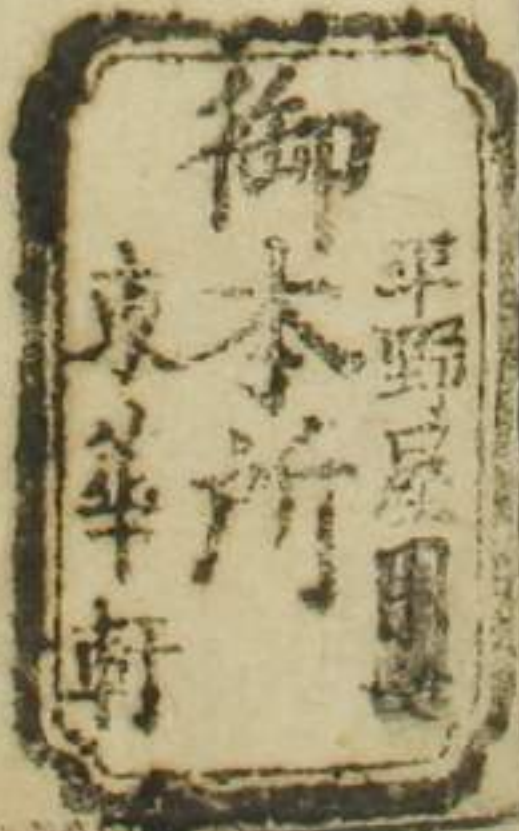 平野屋
御本所
東華軒